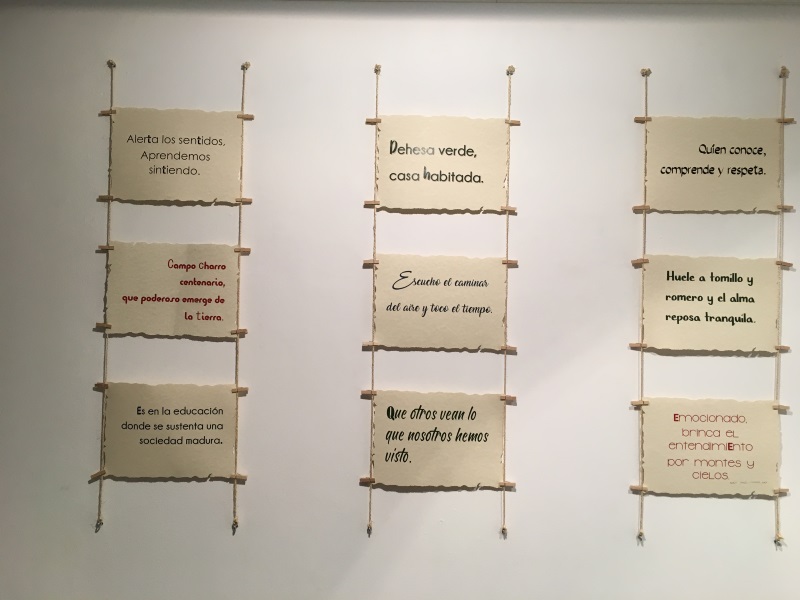 Alerta los sentidos,
Aprendemos
sintiendo.
Campo Charro
centenario,
que poderoso emerge de
la tierra.
Es en la educación
donde se sustenta una
sociedad madura.
Dehesa verde,
casa habitada.
Escucho el caminar
del aire y toco el tiempo.
Que otros vean lo
que nosotros hemos
visto.
Quien conoce,
comprende y respeta.
Huele a tomillo y
romero y el alma
reposa tranquila.
Emocionado,
brinca el
entendimiEnto
por montes y
cielos.